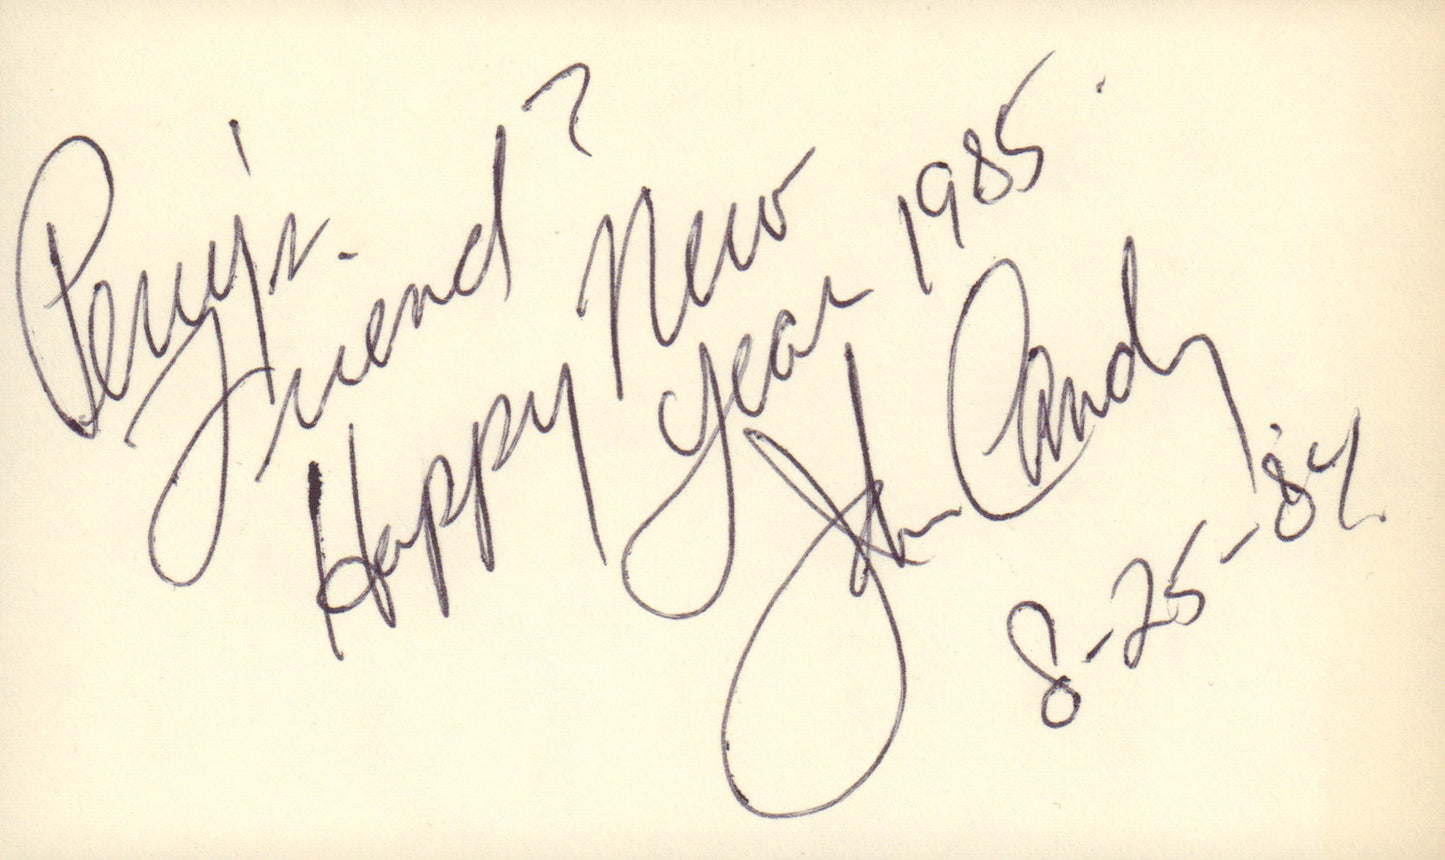 Perry's
Friend?
Happy New
Year 1985.
John Candy
8-25-'84.